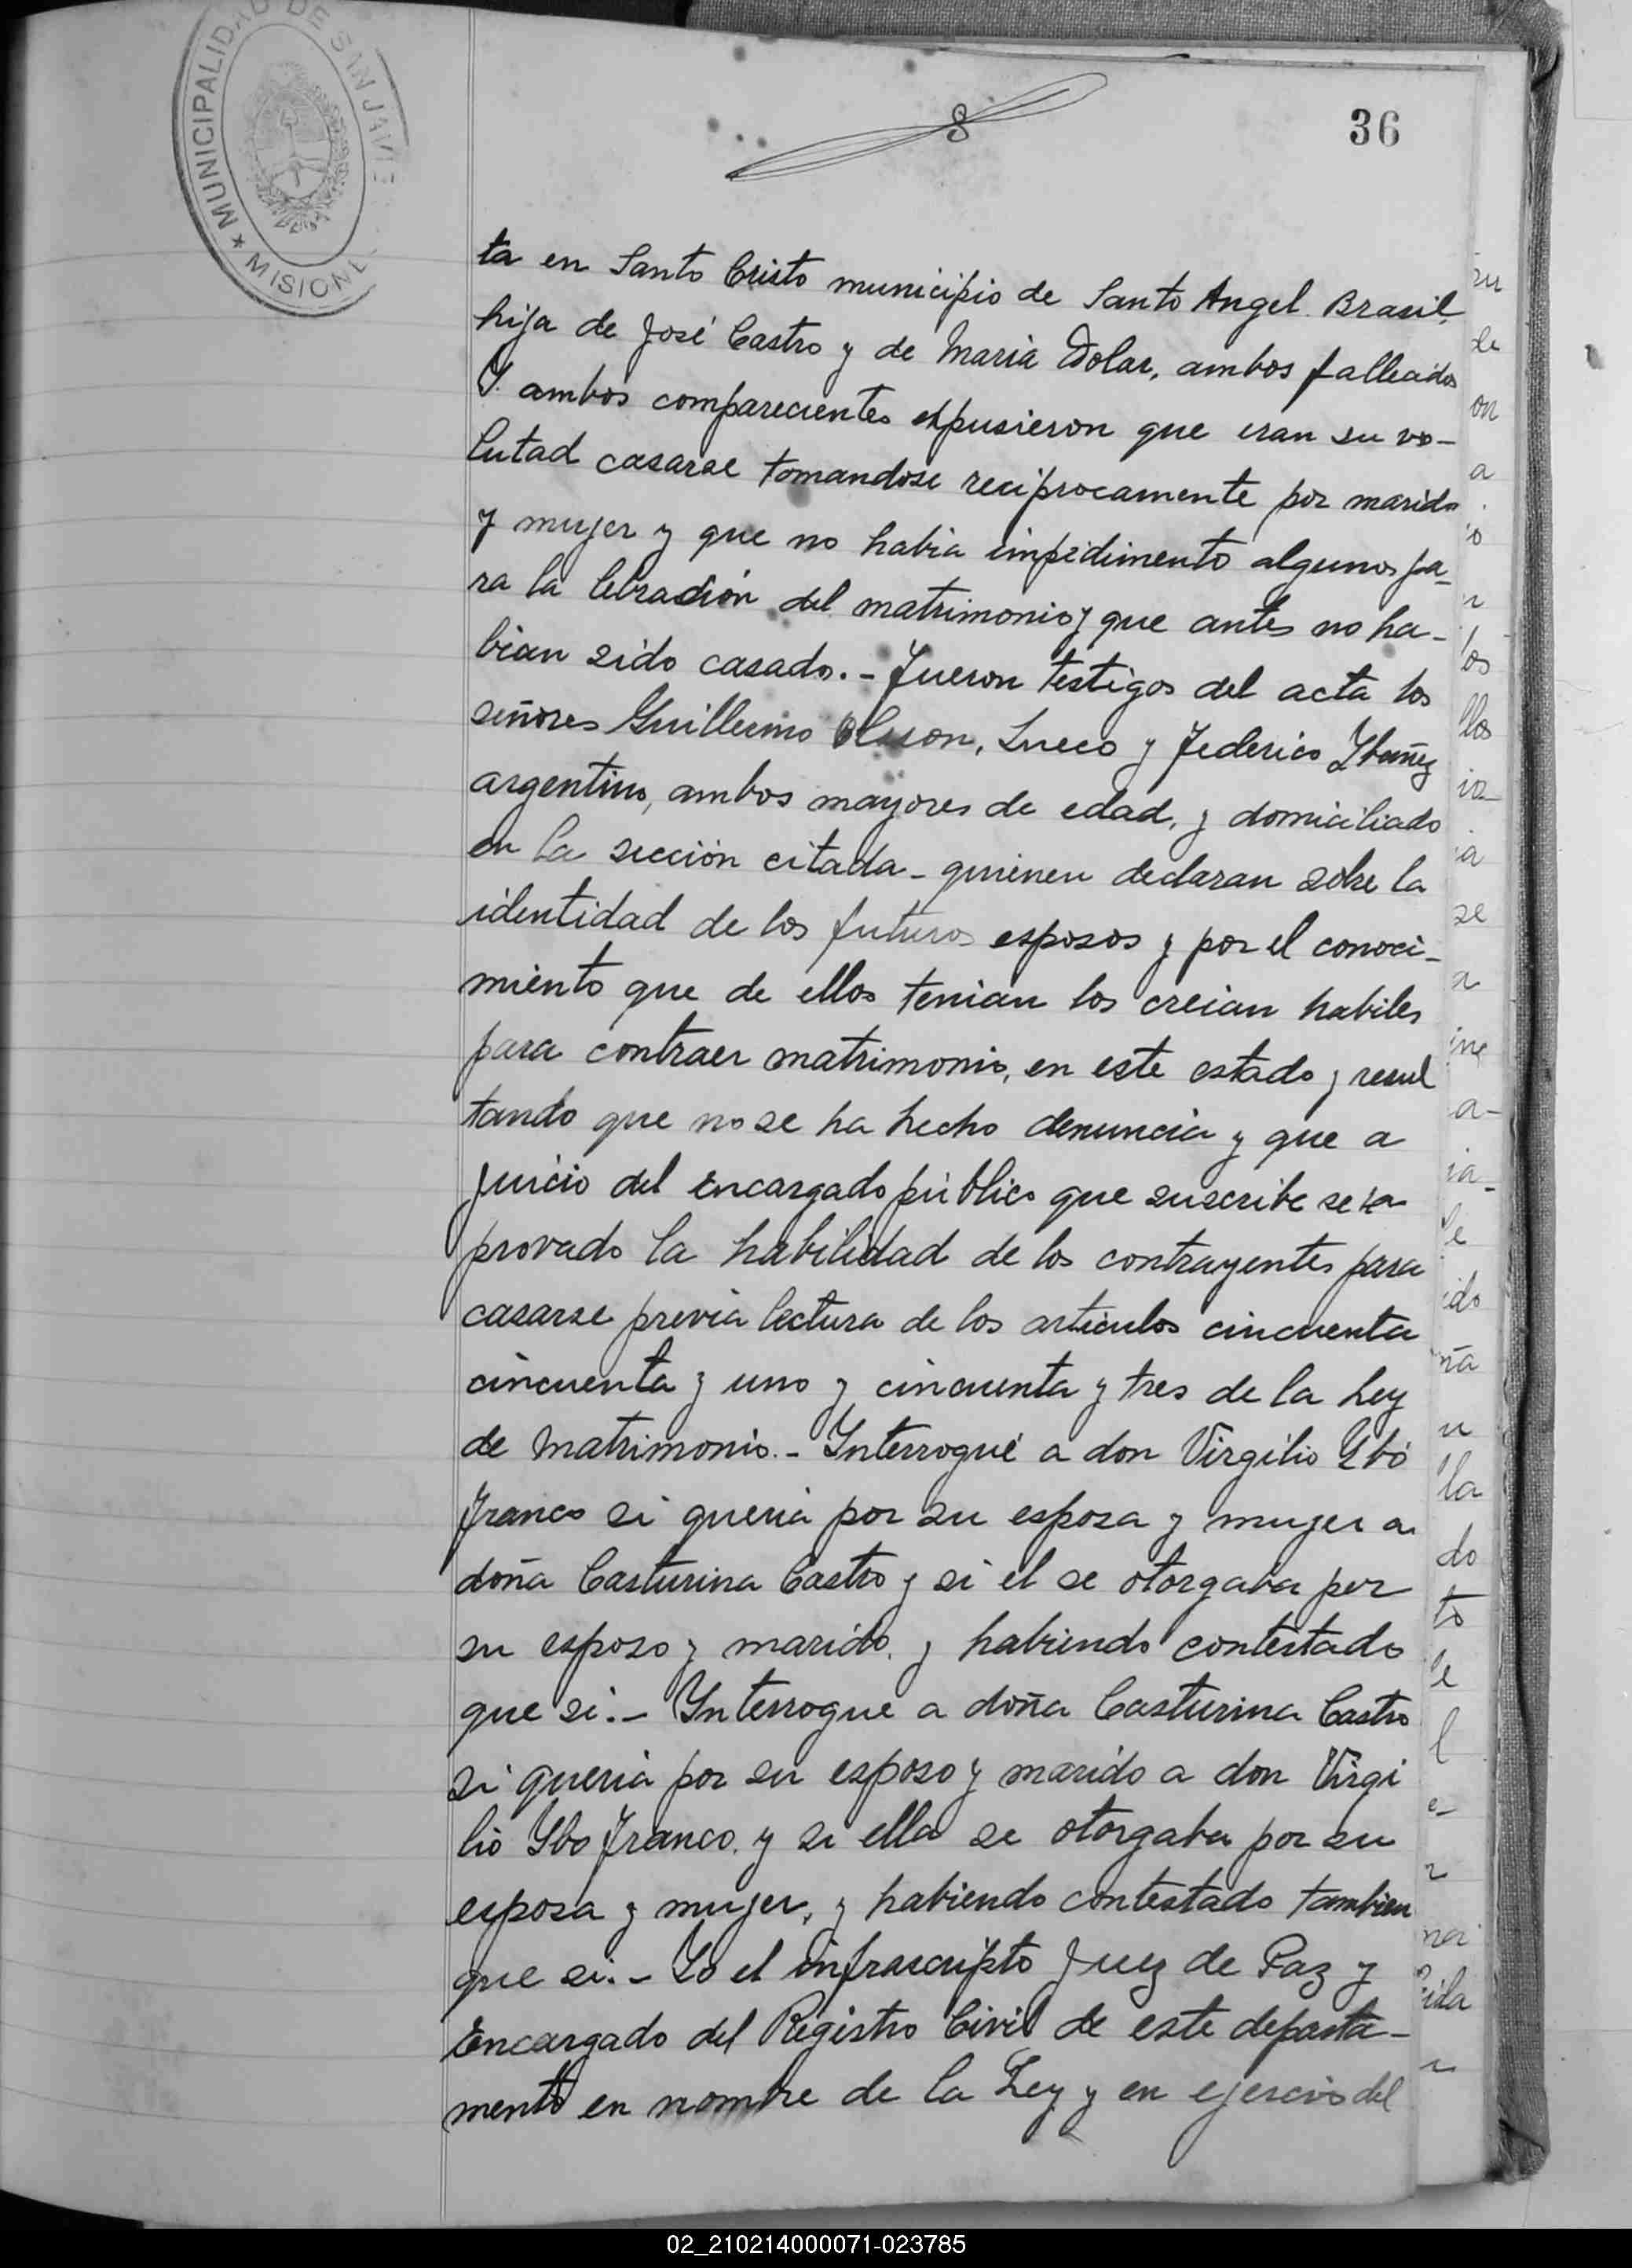 MUNICIPALIDAD DE SAN JAVIE
* MISIONE
8
36
ta en Santo Cristo municipio de Santo Angel. Brasil,
hija de José Castro y de Maria Dolar, ambos fallecidos
Y ambos comparecientes expusieron que eran su vo-
lutad casarse tomandose reciprocamente por marido
y mujer y que no habia impedimento algunos pa-
ra la lebración del matrimonio y que antes no ha-
bian sido casado. - Fueron testigos del acta los
señores Guillermo Olsson, Sueco y Federico Ybañez
argentino, ambos mayores de edad, y domiciliado
en la sección citada - quienen declaran sobre la
identidad de los futuros esposos y por el conoci-
miento que de ellos tenian los creian habiles
para contraer matrimonio, en este estado y resul
tando que no se ha hecho denuncia y que a
juicio del encargado público que suscribe se ha
provado la habilidad de los contrayentes para
casarse previa lectura de los articulos cincuenta
cincuenta y uno y cincuenta y tres de la Ley
de Matrimonio. - Interrogué a don Virgilio Ybó
Franco si queria por su esposa y mujer a
doña Casturina Castro y si el se otorgaba por
su esposo y marido, y habiendo contestado
que si. - Ynterrogue a doña Casturina Castro
si queria por su esposo y marido a don Virgi
lio Ybo Franco, y si ella se otorgaba por su
esposa y mujer, y habiendo contestado tambien
que si. - Yo el infrascripto Juez de Paz y
Encargado del Registro Civil de este departa-
mento en nombre de la Ley y en ejercio del
02_210214000071-023785